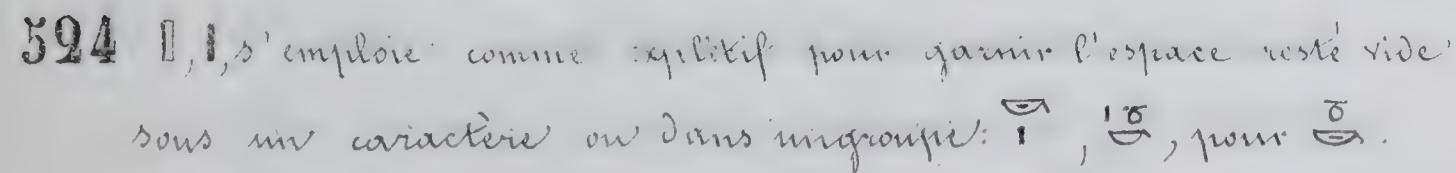 524 𓏤, 𓏤, s'emploie comme explétif pour garnir l'espace resté vide
sous un caractère ou dans un groupe : , , pour .